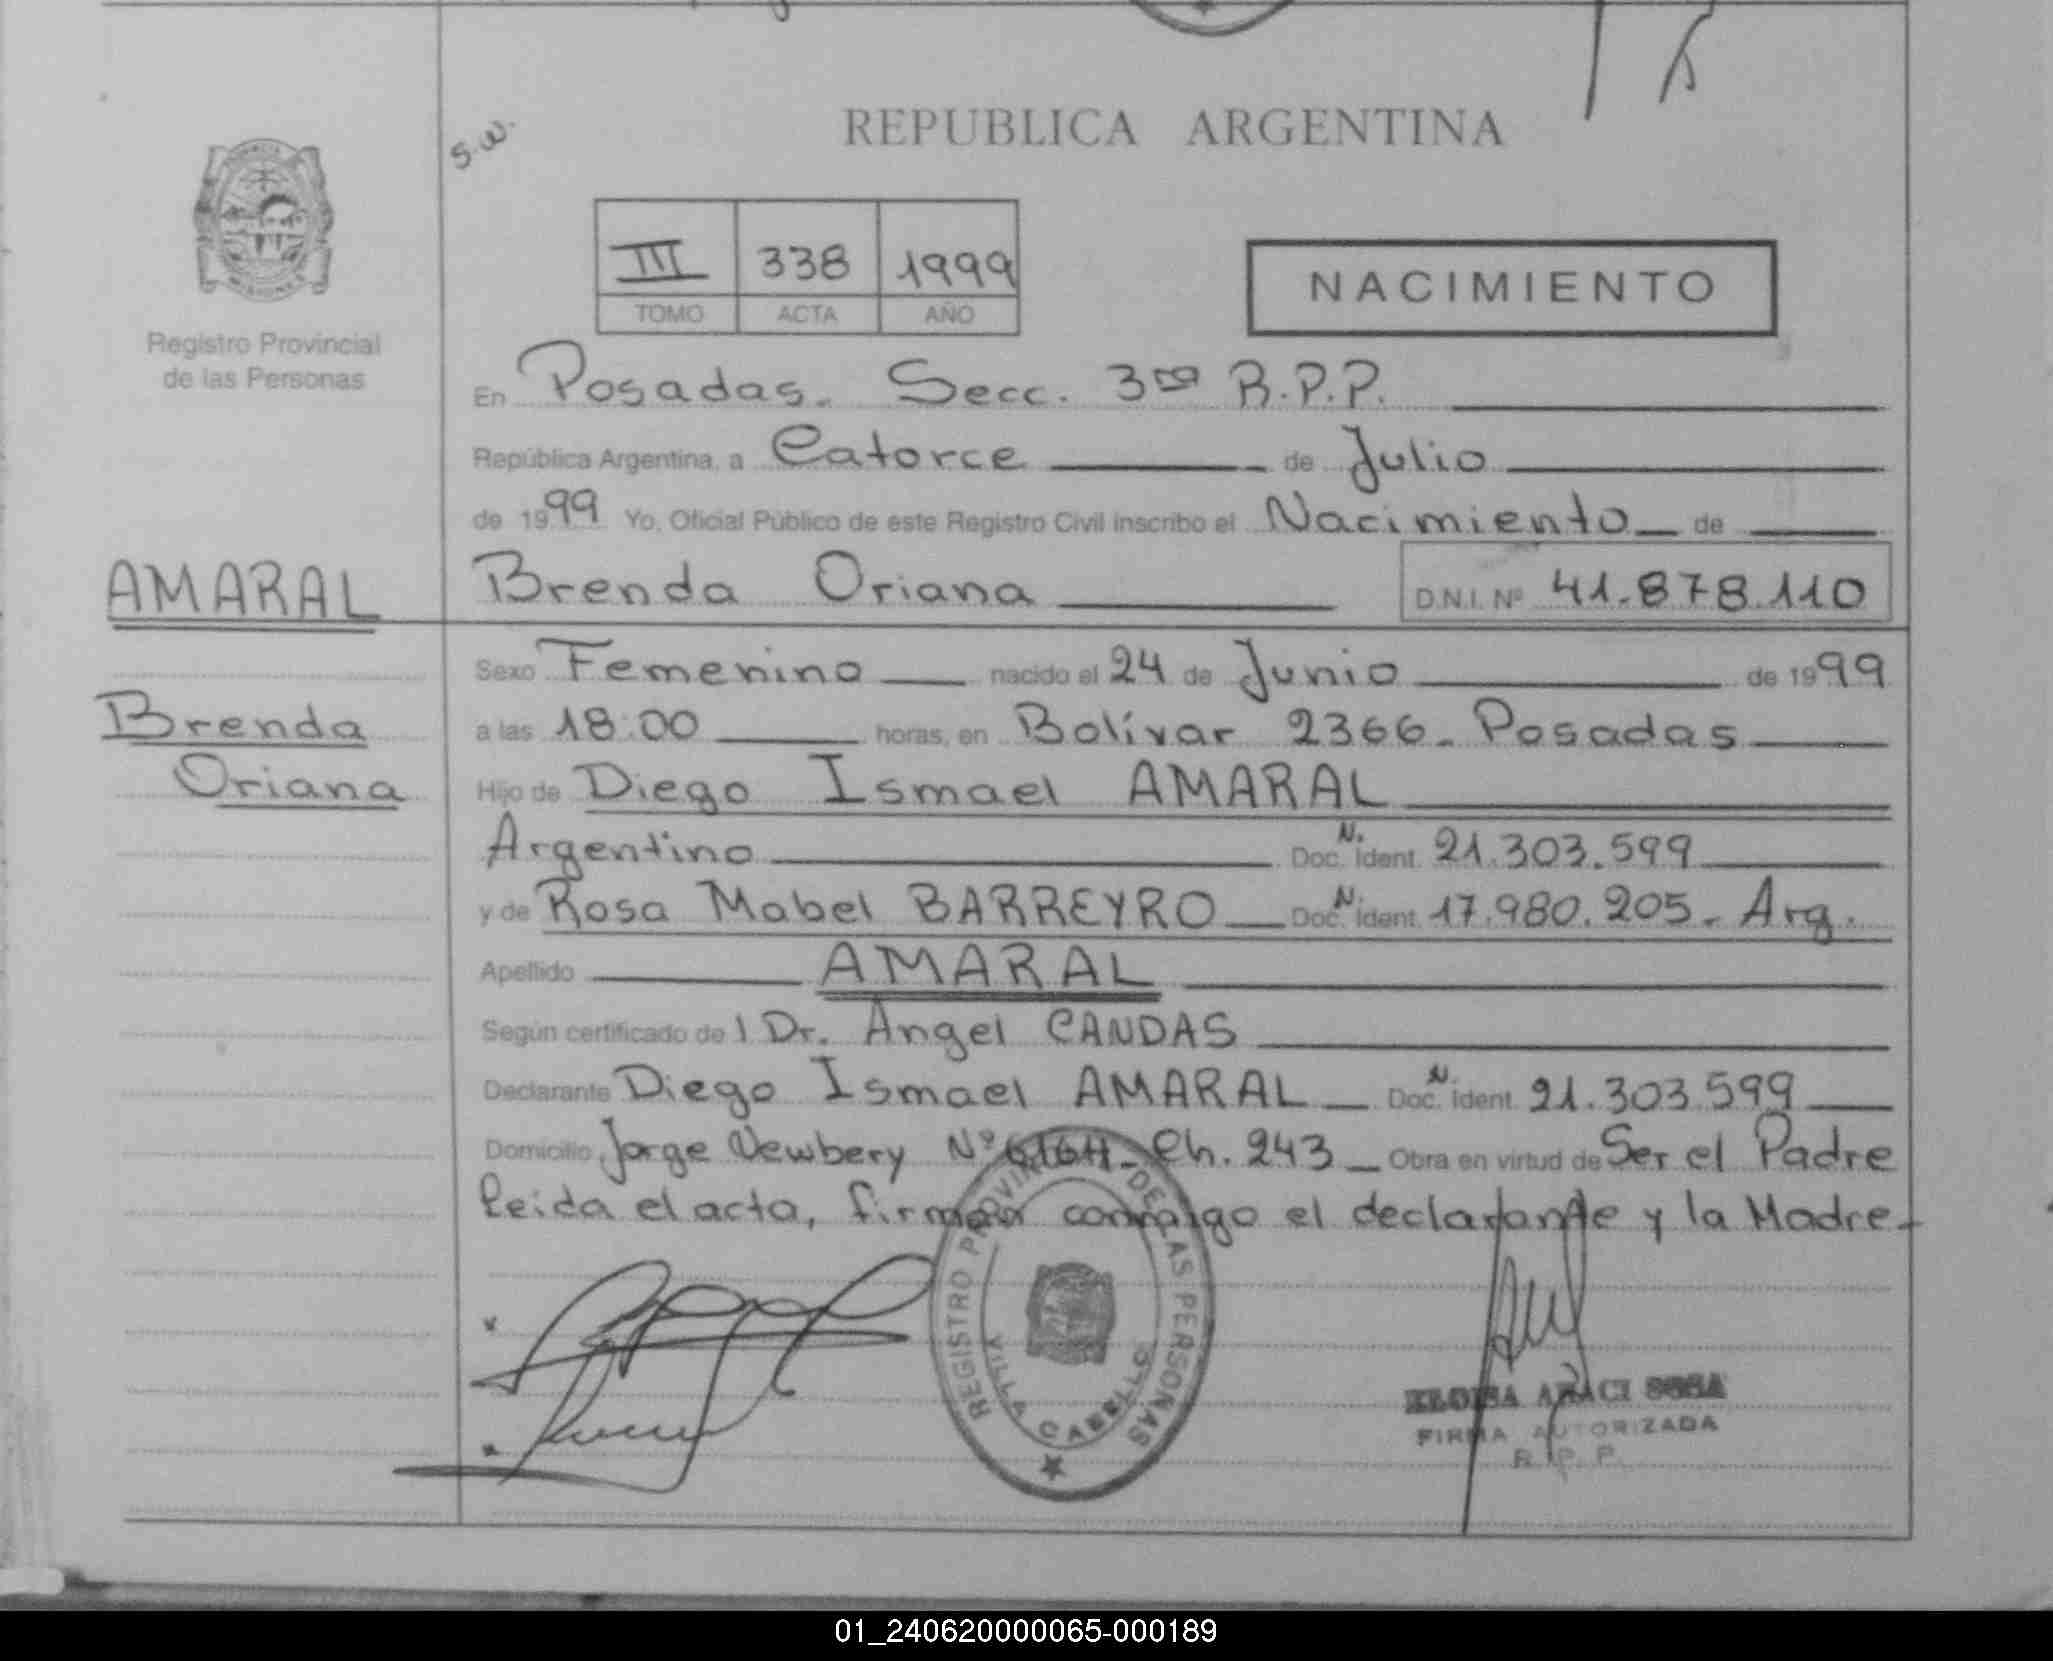 REPUBLICA ARGENTINA
S.W.
III 338 1999
TOMO ACTA AÑO
NACIMIENTO
Registro Provincial
de las Personas
En Posadas. Secc. 3ra R.P.P.
República Argentina, a Catorce de Julio
de 1999 Yo, Oficial Público de este Registro Civil inscribo el Nacimiento de
AMARAL Brenda Oriana D.N.I. Nº 41.878.110
Sexo Femenino nacido el 24 de Junio de 1999
Brenda
Oriana
a las 18:00 horas, en Bolívar 2366. Posadas
Hijo de Diego Ismael AMARAL
Argentino Doc. N. Ident. 21.303.599
y de Rosa Mabel BARREYRO Doc. N. Ident. 17.980.205. Arg.
Apellido AMARAL
Según certificado del Dr. Angel CANDAS
Declarante Diego Ismael AMARAL Doc. N. Ident. 21.303.599
Domicilio Jorge Newbery Nº Ch. 243 Obra en virtud de Ser el Padre
Leida el acta, firman conmigo el declarante y la Madre
REGISTRO PROVINCIAL DE LAS PERSONAS
VILLA CABELLO
ELOISA ARACI SOSA
FIRMA AUTORIZADA
R. P. P.
01_240620000065-000189